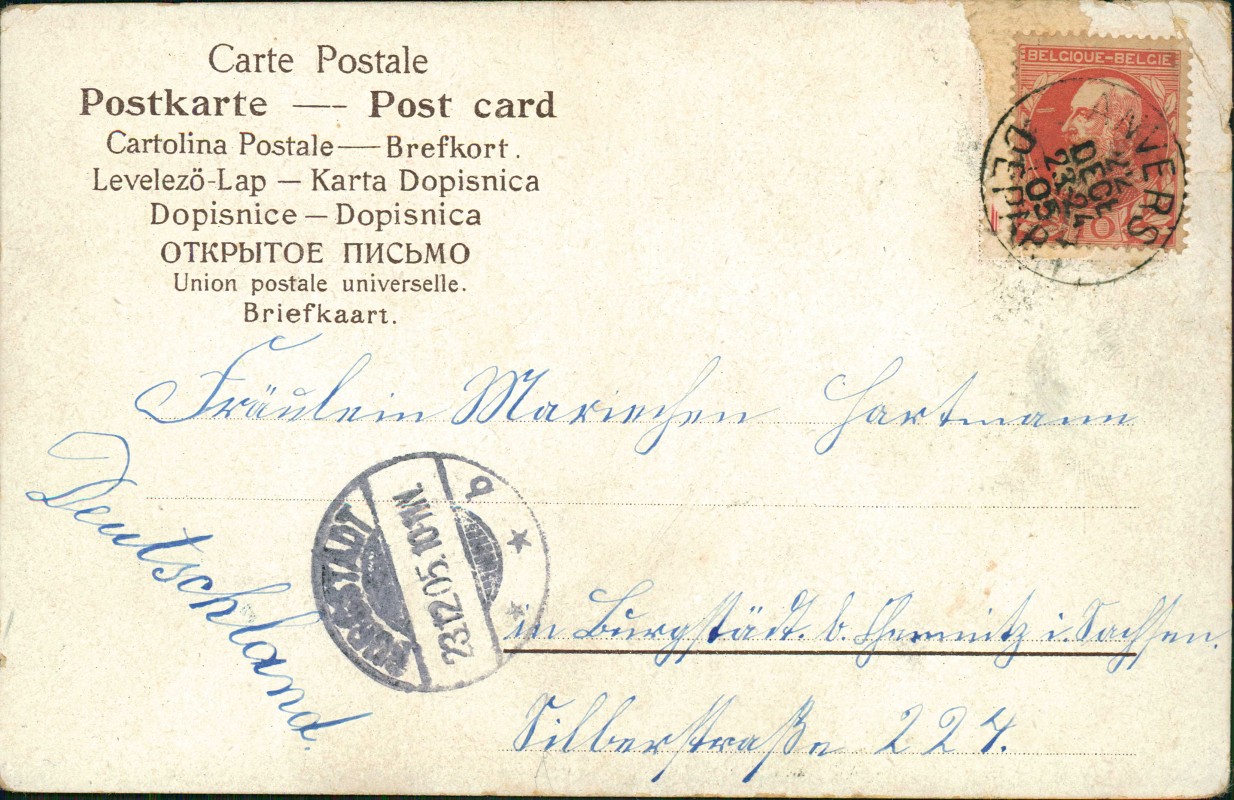 Carte Postale
Postkarte — Post card
Cartolina Postale — Brefkort.
Levelező-Lap — Karta Dopisnica
Dopisnice — Dopisnica
ОТКРЫТОЕ ПИСЬМО
Union postale universelle.
Briefkaart.
BELGIQUE-BELGIE
ANVERS
DEPART
22 DECE
23-24
05
10
Fräulein Mariechen Hartmann
Deutschland.
BURGSTÄDT
23.12.05. 10-11V.
b
in Burgstädt. b. Chemnitz i. Sachsen.
Silberstraße 224.